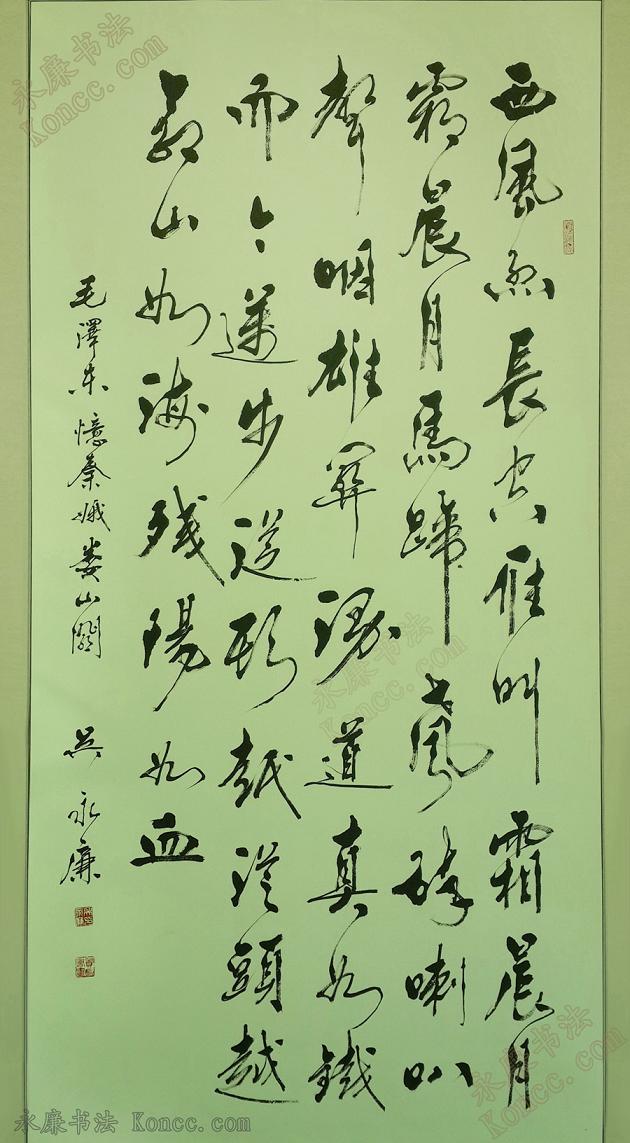 西風烈長空雁叫霜晨月
霜晨月馬蹄声碎喇叭
聲咽雄關漫道真如鐵
而今邁步從頭越從頭越
蒼山如海殘陽如血
毛澤东憶秦娥婁山關 吴永廉
永廉书法
Koncc.com
永廉书法
Koncc.com
永廉书法
Koncc.com
永廉书法 Koncc.com